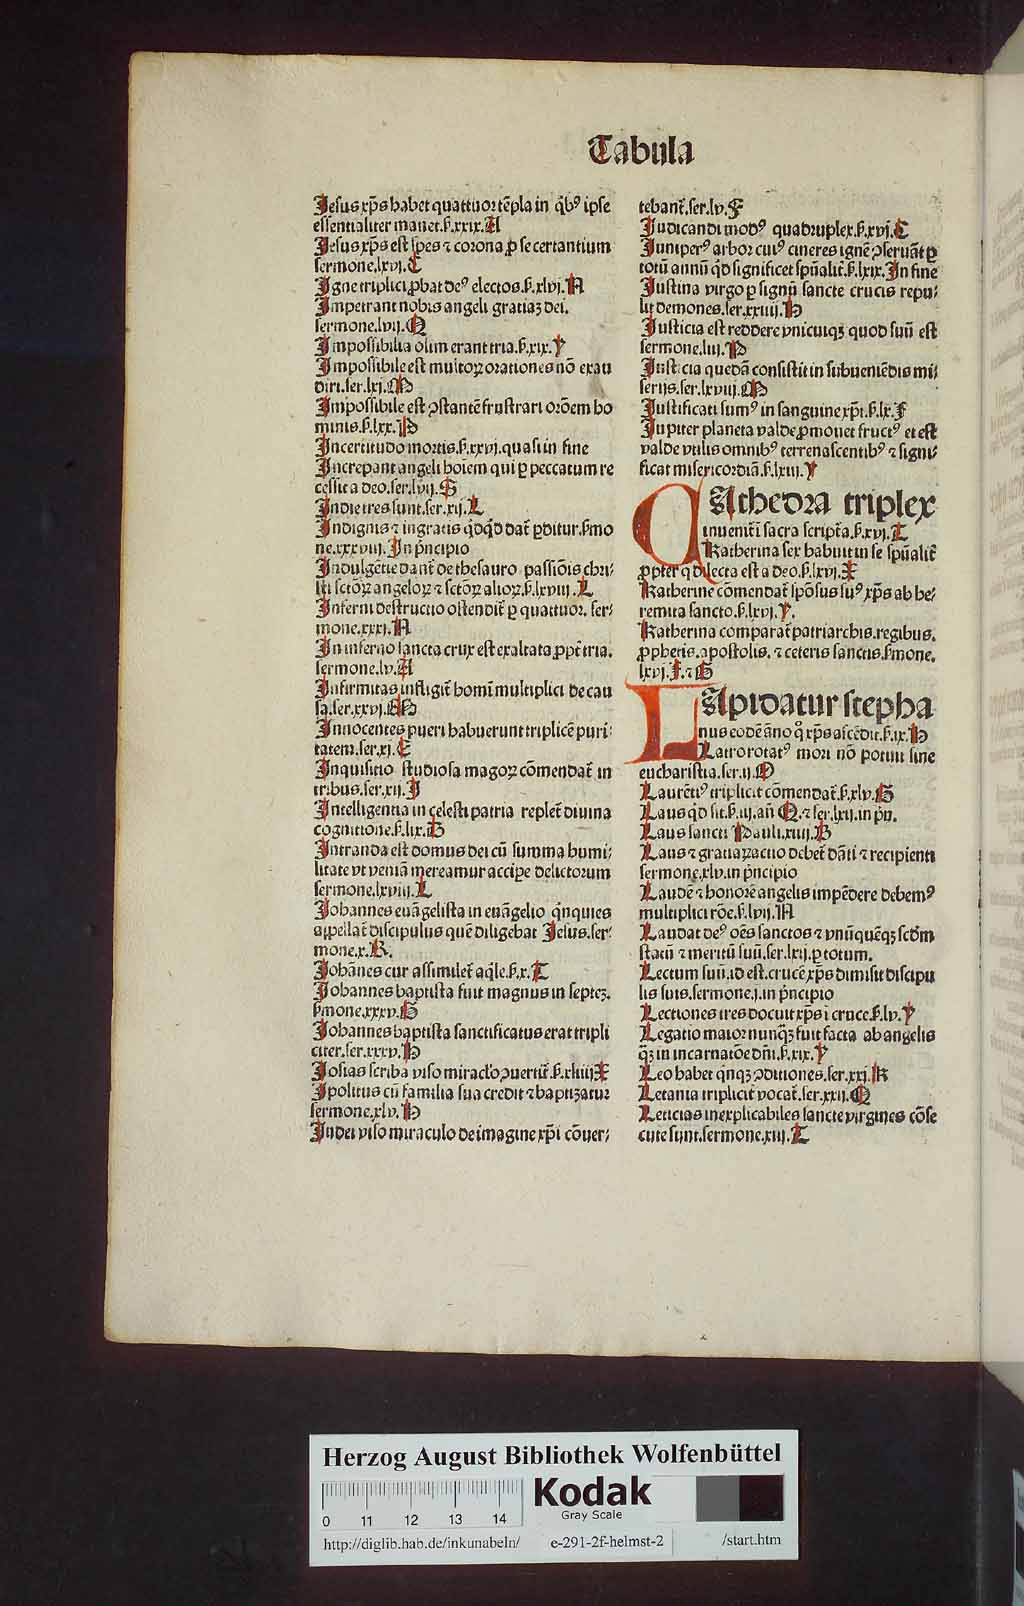 Tabula
Jesus xp̃s habet quattuor tẽpla in q̃bꝰ ipse
essentialiter manet.ẜ.xxix.A
Jesus xp̃s est spes ⁊ corona ꝓ se certantium
sermone.lxvj.C
Igne triplici ꝓbat deꝰ electos.ẜ.xlvj.A
Impetrant nobis angeli gratiaꝫ dei.
sermone.lvij.Q
Impossibilia olim erant tria.ẜ.xix.Y
Impossibile est multoꝝ orationes nõ exau
diri.ser.lxj.M
Impossibile est ꝯstantẽ frustrari orõem ho
minis.ẜ.lxx.P
Incertitudo mortis.ẜ.xxvj.quasi in fine
Increpant angeli hoiem qui ꝑ peccatum re
cessit a deo.ser.lvij.S
Indie tres sunt.ser.xij.L
Indignis ⁊ ingratis q̃dq̃d dat̃ ꝑditur.ẜmo
ne.xxxviij.In p̃ncipio
Indulgẽtie dant̃ de thesauro passiõis chri⸗
sti sctõꝝ angeloꝝ ⁊ sctõꝝ alioꝝ.ẜ.lxviij.L
Inferni destructio ostendit̃ ꝑ quattuor. ser⸗
mone.xxxj.A
In inferno sancta crux est exaltata ꝓpt̃ tria.
sermone.lv.A
Infirmitas infligit̃ homini multiplici de cau
sa.ser.xxvj.M
Innocentes pueri habuerunt triplicẽ puri⸗
tatem.ser.xj.E
Inquisitio studiosa magoꝝ cõmendat̃ in
tribus.ser.xij.J
Intelligentia in celesti patria replet̃ diuina
cognitione.ẜ.lix.B
Intranda est domus dei cũ summa humi⸗
litate vt veniã mereamur accipe delictorum
sermone.lxviij.L
Johannes euãgelista in euãgelio q̃nquies
appellat̃ discipulus quẽ diligebat Jesus.ser⸗
mone.x.R.
Johãnes cur assimilet̃ aq̃le.ẜ.x.T
Johannes baptista fuit magnus in septeꝫ.
ẜmone.xxxv.G
Johannes baptista sanctificatus erat tripli
citer.ser.xxxv.H
Josias scriba viso miraclo ꝯuertit̃.ẜ.xliiij.X
Ipolitus cũ familia sua credit ⁊ baptizatur
sermone.xlv.H
Judei viso miraculo de imagine xp̃i cõuer⸗
tebant̃.ser.lv.F
Judicandi modꝰ quadruplex.ẜ.xvj.C
Juniperꝰ arbor cuiꝰ cineres ignẽ ꝯseruãt ꝑ
totũ annũ q̃d significet sp̃ualit̃.ẜ.lxix.In fine
Justina virgo ꝑ signũ sancte crucis repu⸗
lit demones.ser.xxiiij.H
Justicia est reddere vnicuiqꝫ quod suũ est
sermone.liij.P
Justicia quedã consistit in subueniẽdis mi⸗
serijs.ser.lxviij.M
Justificati sumꝰ in sanguine xp̃i.ẜ.lx.F
Jupiter planeta valde ꝓmouet fructꝰ et est
valde vtilis omnibꝰ terre nascentibꝰ ⁊ signi⸗
ficat misericordiã.ẜ.lxiij.Y
CAthedra triplex
inuenit̃ ĩ sacra script̃a.ẜ.xvj.L
Katherina sex habuit in se sp̃ualit̃
ꝓpter q̃ dilecta est a deo.ẜ.lxvj.X
Katherine cõmendat̃ spõsus suꝰ xp̃s ab he⸗
remita sancto.ẜ.lxvj.Y.
Katherina comparat̃ patriarchis.regibus.
ꝓphetis.apostolis.⁊ ceteris sanctis.ẜmone.
lxvj.F.⁊ G
LApidatur stepha
nus eodẽ ãno q̃ xp̃s ascẽdit.ẜ.ix.H
Latro rotatꝰ mori nõ potuit sine
eucharistia.ser.ij.O
Laurẽtiꝰ triplicit̃ cõmendat̃.ẜ.xlv.G
Laus q̃d sit.ẜ.iij.añ Q.⁊ ser.lxij.in pñ.
Laus sancti Pauli.xiiij.B
Laus ⁊ gratiaꝝ actio debet̃ dãti ⁊ recipienti
sermone.xlv.in p̃ncipio
Laudẽ ⁊ honorẽ angelis impẽdere debemꝰ
multiplici rõe.ẜ.lvij.A
Laudat deꝰ oẽs sanctos ⁊ vnũquẽqꝫ sctõm
statũ ⁊ meritũ suũ.ser.lxij.ꝑ totum.
Lectum suũ.id est.crucẽ xp̃s dimisit discipu
lis suis.sermone.j.in p̃ncipio
Lectiones tres docuit xp̃s ĩ cruce.ẜ.lv.Y
Legatio maior nunq̃ꝫ fuit facta ab angelis
q̃ꝫ in incarnatõe dñi.ẜ.xix.Y
Leo habet q̃nqꝫ ꝯditiones.ser.xxj.K
Letania triplicit̃ vocat̃.ser.xxij.Q
Leticias inexplicabiles sancte virgines cõse
cute sunt.sermone.xiij.T
Herzog August Bibliothek Wolfenbüttel
0 11 12 13 14
Kodak
Gray Scale
http://diglib.hab.de/inkunabeln/ e-291-2f-helmst-2 /start.htm